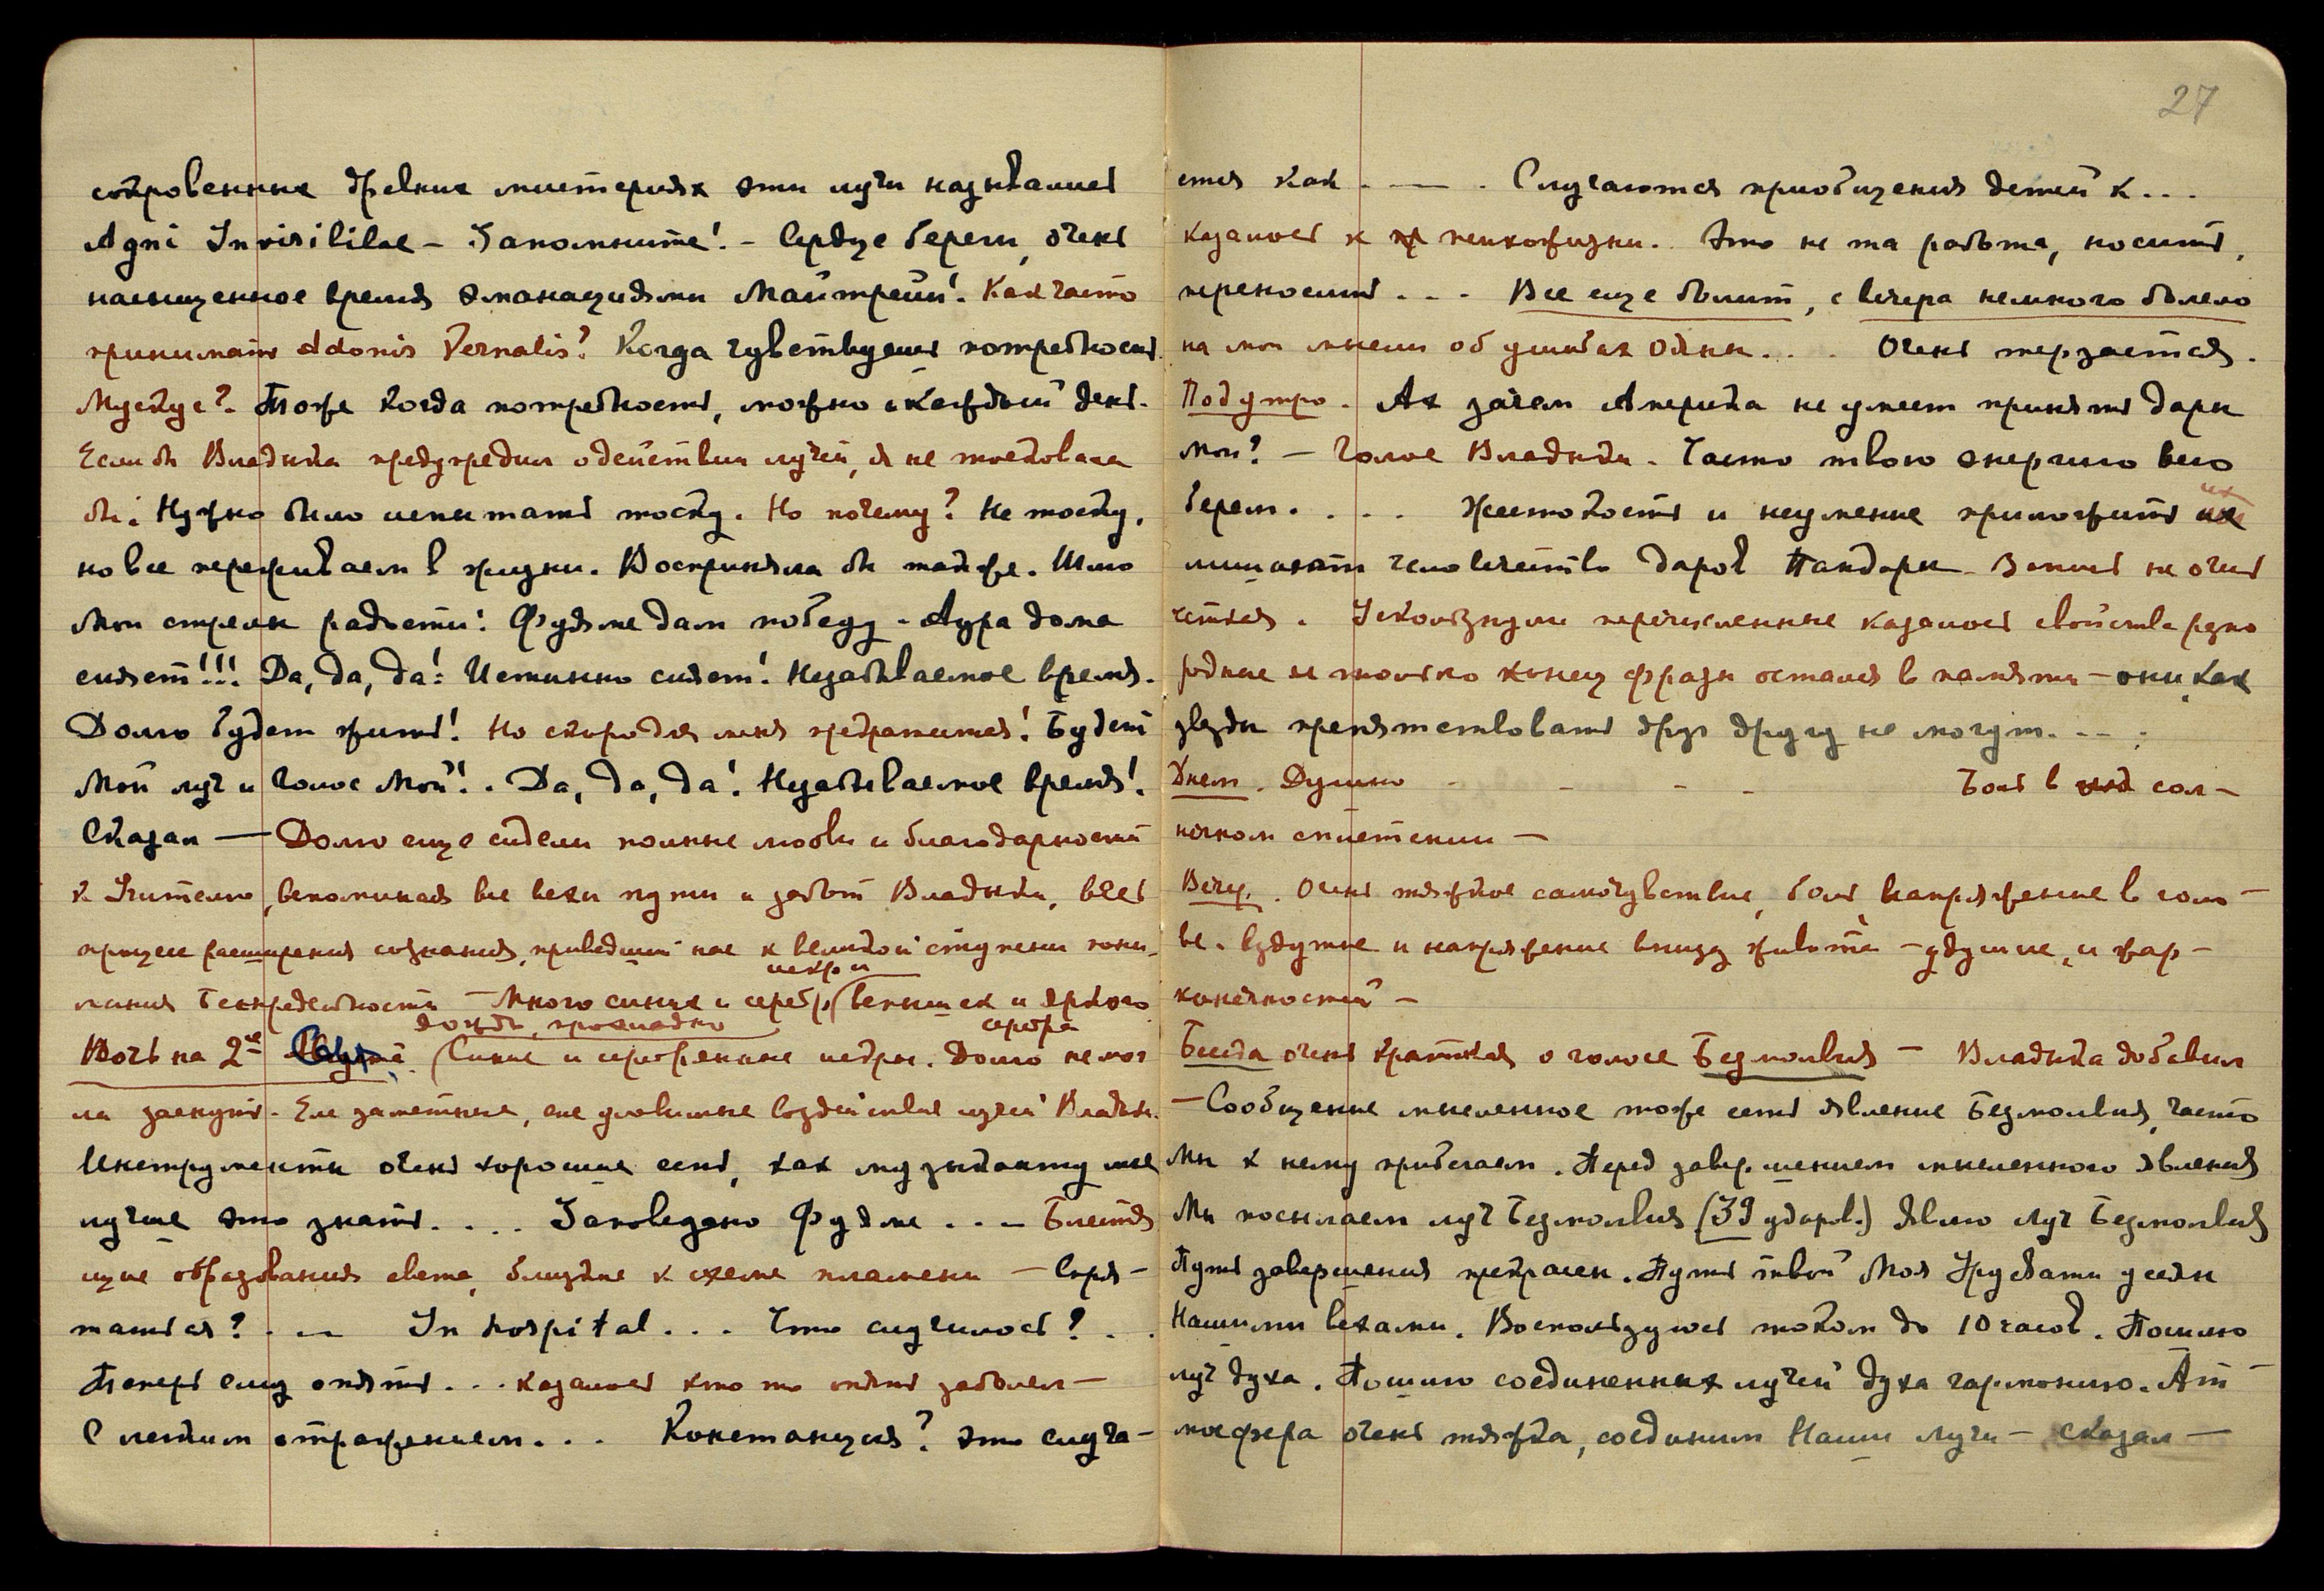 сокровенных древних мистериях эти лучи назывались
Agni Invisibilae – Запомните! – Сердце береги, очень
насыщенное время эманациями Майтрейи! Как часто
принимать Adonis Vernalis? Когда чувствуешь потребность.
Мускус? Тоже когда потребность, можно и каждый день.
Если бы Владыка предупредил о действии лучей, я не тосковала
бы. Нужно было испытать тоску. Но почему? Не тоску,
но все переживаем в жизни. Восприняла бы также. Шлю
Мои стрелы радости! Фуяме дам победу. Аура дома
сияет!!! Да, да, да! Истинно сияет! Незабываемое время.
Долго будет жить! Но скоро для меня прекратится! Будет
Мой луч и Голос Мой! . Да, да, да! Незабываемое время!
Сказал — Долго еще сидели полные любви и благодарности
к Учителю, вспоминая все вехи пути и забот Владыки, весь
процесс расширения сознания, приведший нас к великой ступени пони-
мания Беспредельности – Много синих и серебр. вспышек и яркого
искры
серебра
дождь, прохладно
Ночь на 2ое Синие и серебренные искры. Долго не мог
ла заснуть. Еле заметные, еле уловимые воздействия лучей Владыки.
Инструменты очень хорошие есть, как музыканту мне
лучше это знать. . . . Заповедано Фуяме . . . – Блестя
щие образования света, близкие к схеме пламени – Спря-
таться? . — In hospital . . . Что случилось? . . .
Теперь ему опять . . . казалось кто то опять заболел —
С легким отражением . . . Констанция? Это случа-
27
ется как . — . Случаются приобщения детей к . . .
казалось к пр психожизни. Это не та работа, носить,
переносить . . . Все еще болит, с вечера немного болело
на мои мысли об ушибах Ояны . . . Очень терзается.
Под утро. Ах зачем Америка не умеет принять дары
мои? – Голос Владыки. Часто твою энергию всю
берем. . . . Жестокость и неумение приложить их
лишают человечество даров Пандоры. Запись не очень
четкая. Ускользнули перечисленные казалось свойства разно
родные и только конец фразы остался в памяти – они, как
звезды препятствовать друг другу не могут. – – .
Днем. Душно - - - - Боль в сол-
нечном сплетении —
Вечер. Очень тяжкое самочувствие, боль, напряжение в голо-
ве. вздутие и напряжение внизу живота – удушие, и жар –
конечностей –
Беседа очень краткая о голосе Безмолвия – Владыка добавил
– Сообщение мысленное тоже есть явление Безмолвия, часто
Мы к нему прибегаем. Перед завершением мысленного явления
Мы посылаем луч Безмолвия (39 ударов.) Явлю луч Безмолвия
Путь завершения прекрасен. Путь твой Моя Урусвати усеян
Нашими вехами. Воспользуюсь током до 10 часов. Пошлю
луч духа. Пошлю соединенных лучей духа гармонию. Ат
мосфера очень тяжка, соединим Наши лучи – сказал —